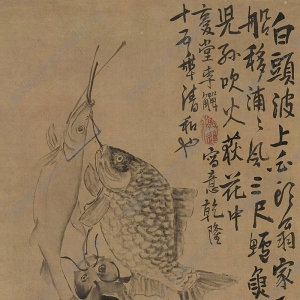 白頭波上白頭翁家
船移浦〻風三尺鱸魚
兒孫吹火荻花中
復堂李鱓寫意乾隆
十年清和也